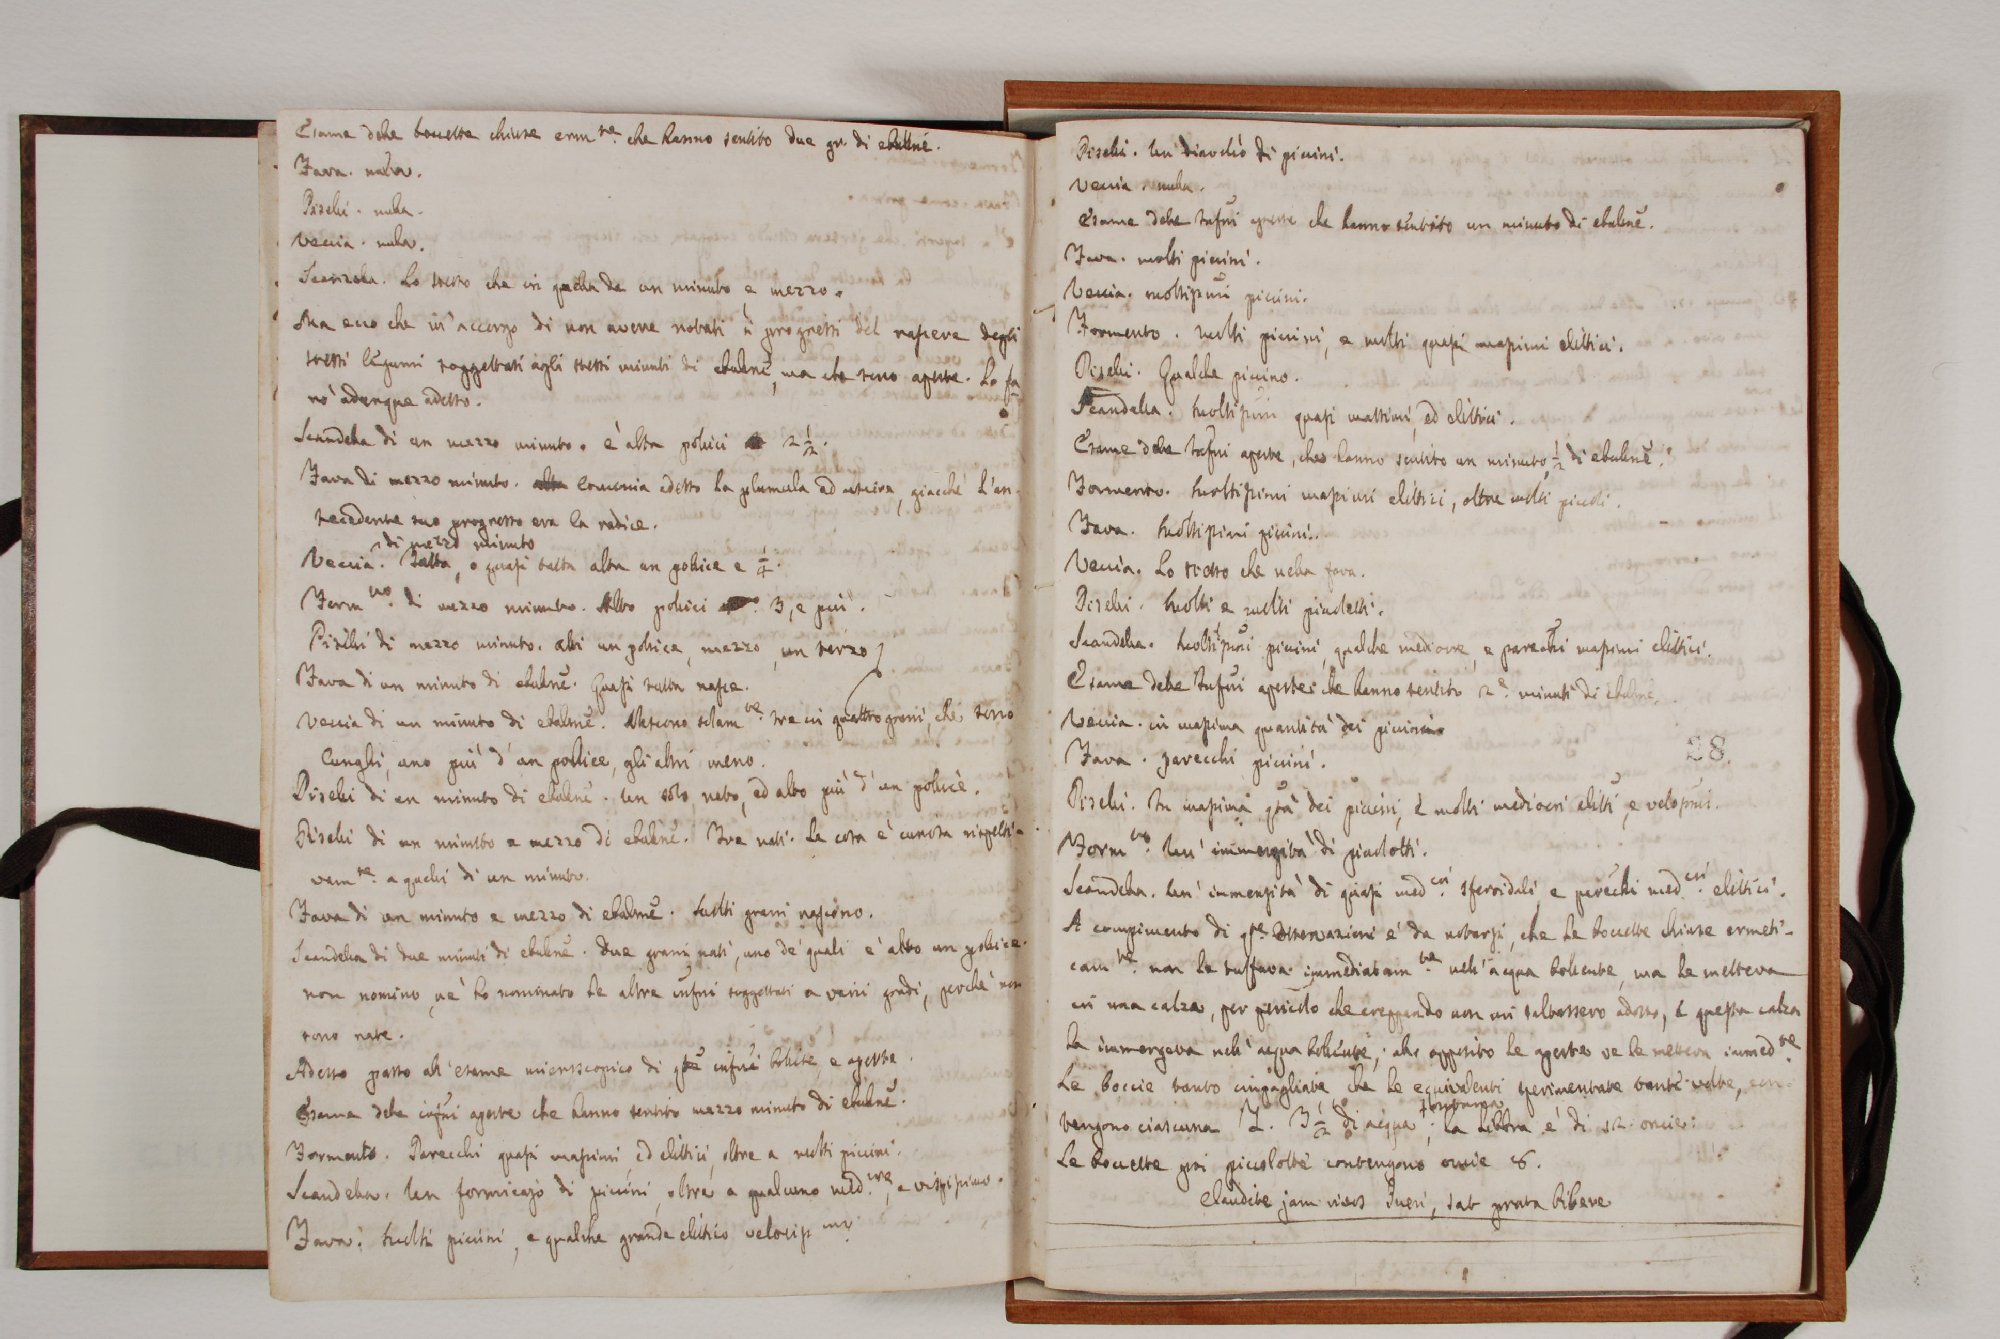 Esame delle boccette chiuse erm.te che hanno sentito due m. di ebulne.
Fava. nulla.
Piselli. nulla.
Veccia. nulla.
Scandella. Lo stesso che in quella da un minuto e mezzo.
Ma ecco che m'accorgo di non avere notati i progressi del nascere degli
stessi legumi soggettati agli stessi minuti di ebulne, ma che sono aperte. Lo fa-
rò adunque adesso.
Scandella di un mezzo minuto. è alta pollici 2 1/2.
Fava di mezzo minuto. Comincia adesso la plumula ad uscire, giacché l'an-
tecedente suo progresso era la radice.
di mezzo minuto
Veccia. Tutta, o quasi tutta alta un pollice e 1/4.
Form.to di mezzo minuto. Alto pollici 3, e più.
Piselli di mezzo minuto. alti un pollice, mezzo, un terzo
Fava di un minuto di ebulne. Quasi tutta nasce.
Veccia di un minuto di ebulne. Nascono solam.te tre in quattro grani, che sono
lunghi, uno più d'un pollice, gli altri meno.
Piselli di un minuto di ebulne. Un solo nato, ed alto più d'un pollice.
Piselli di un minuto e mezzo di ebulne. Tre nati. La cosa è curiosa rispetti-
vam.te a quelli di un minuto.
Fava di un minuto e mezzo di ebulne. Molti grani nascono.
Scandella di due minuti di ebulne. Due grani nati, uno de' quali è alto un pollice.
non nomino, nè ho nominato le altre infni soggettati a varii gradi, perchè non
sono nate.
Adesso passo all'esame microscopico di qte infni bollite e aperte.
Esame delle infni aperte che hanno sentito mezzo minuto di ebulne.
Formento. Parecchi quasi massimi, ed elittici, oltre a molti piccini.
Scandella. Un formicajo di piccini, oltre a qualcuno med.cre, e vispissimo.
Fava. Molti piccini, e qualche grande elittico velocip.mo
Piselli. Un diavolìo di piccini.
Veccia. nulla.
Esame delle infni aperte che hanno sentito un minuto di ebulne.
Fava. molti piccini.
Veccia. moltissimi piccini.
Formento. Molti piccini, e molti quasi massimi elittici.
Piselli. Qualche piccino.
Scandella. Moltissimi quasi massimi, ed elittici.
Esame delle infni aperte, che hanno sentito un minuto 1/2 di ebulne.
Formento. Moltissimi massimi elittici, oltre molti piccoli.
Fava. Moltissimi piccini.
Veccia. Lo stesso che nella fava.
Piselli. Molti e molti piccoletti.
Scandella. Moltissimi piccini, qualche mediocre, e parecchi massimi elittici.
Esame delle infni aperte che hanno sentito 2 minuti di ebulne.
Veccia. in massima quantità dei piccini
Fava. parecchi piccini.
28.
Piselli. In massima qtà dei piccini, e molti mediocri elitti, e velopmi.
Form.to Un' immensità di piccolotti.
Scandella. Un' immensità di quasi med.cri sferoidali, e parecchi med.cri elittici.
A compimento di qte osservazioni è da notarsi, che le boccette chiuse ermeti-
cam.te non le tuffava immediatam.te nell'acqua bollente, ma le metteva
in una calza, per pericolo che creppando non mi saltassero adosso, e questa calza
la immergeva nell'acqua bollente; all'opposito le aperte ve le metteva immed.te
Le boccie tanto impagliate che le equivalenti sperimentate tante volte, con-
tengono ciascuna L. 3 1/2 di acqua; la libbra è di 12 oncie.
Le boccette poi piccolotte contengono oncie 8.
Claudite jam rivos Pueri, sat prata bibere